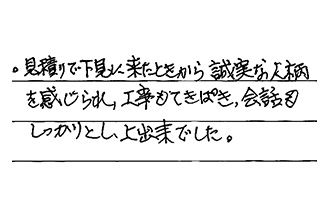 。見積りで下見に来たときから誠実な人柄
を感じられ,工事もてきぱき,会話も
しっかりとし,上出来でした。